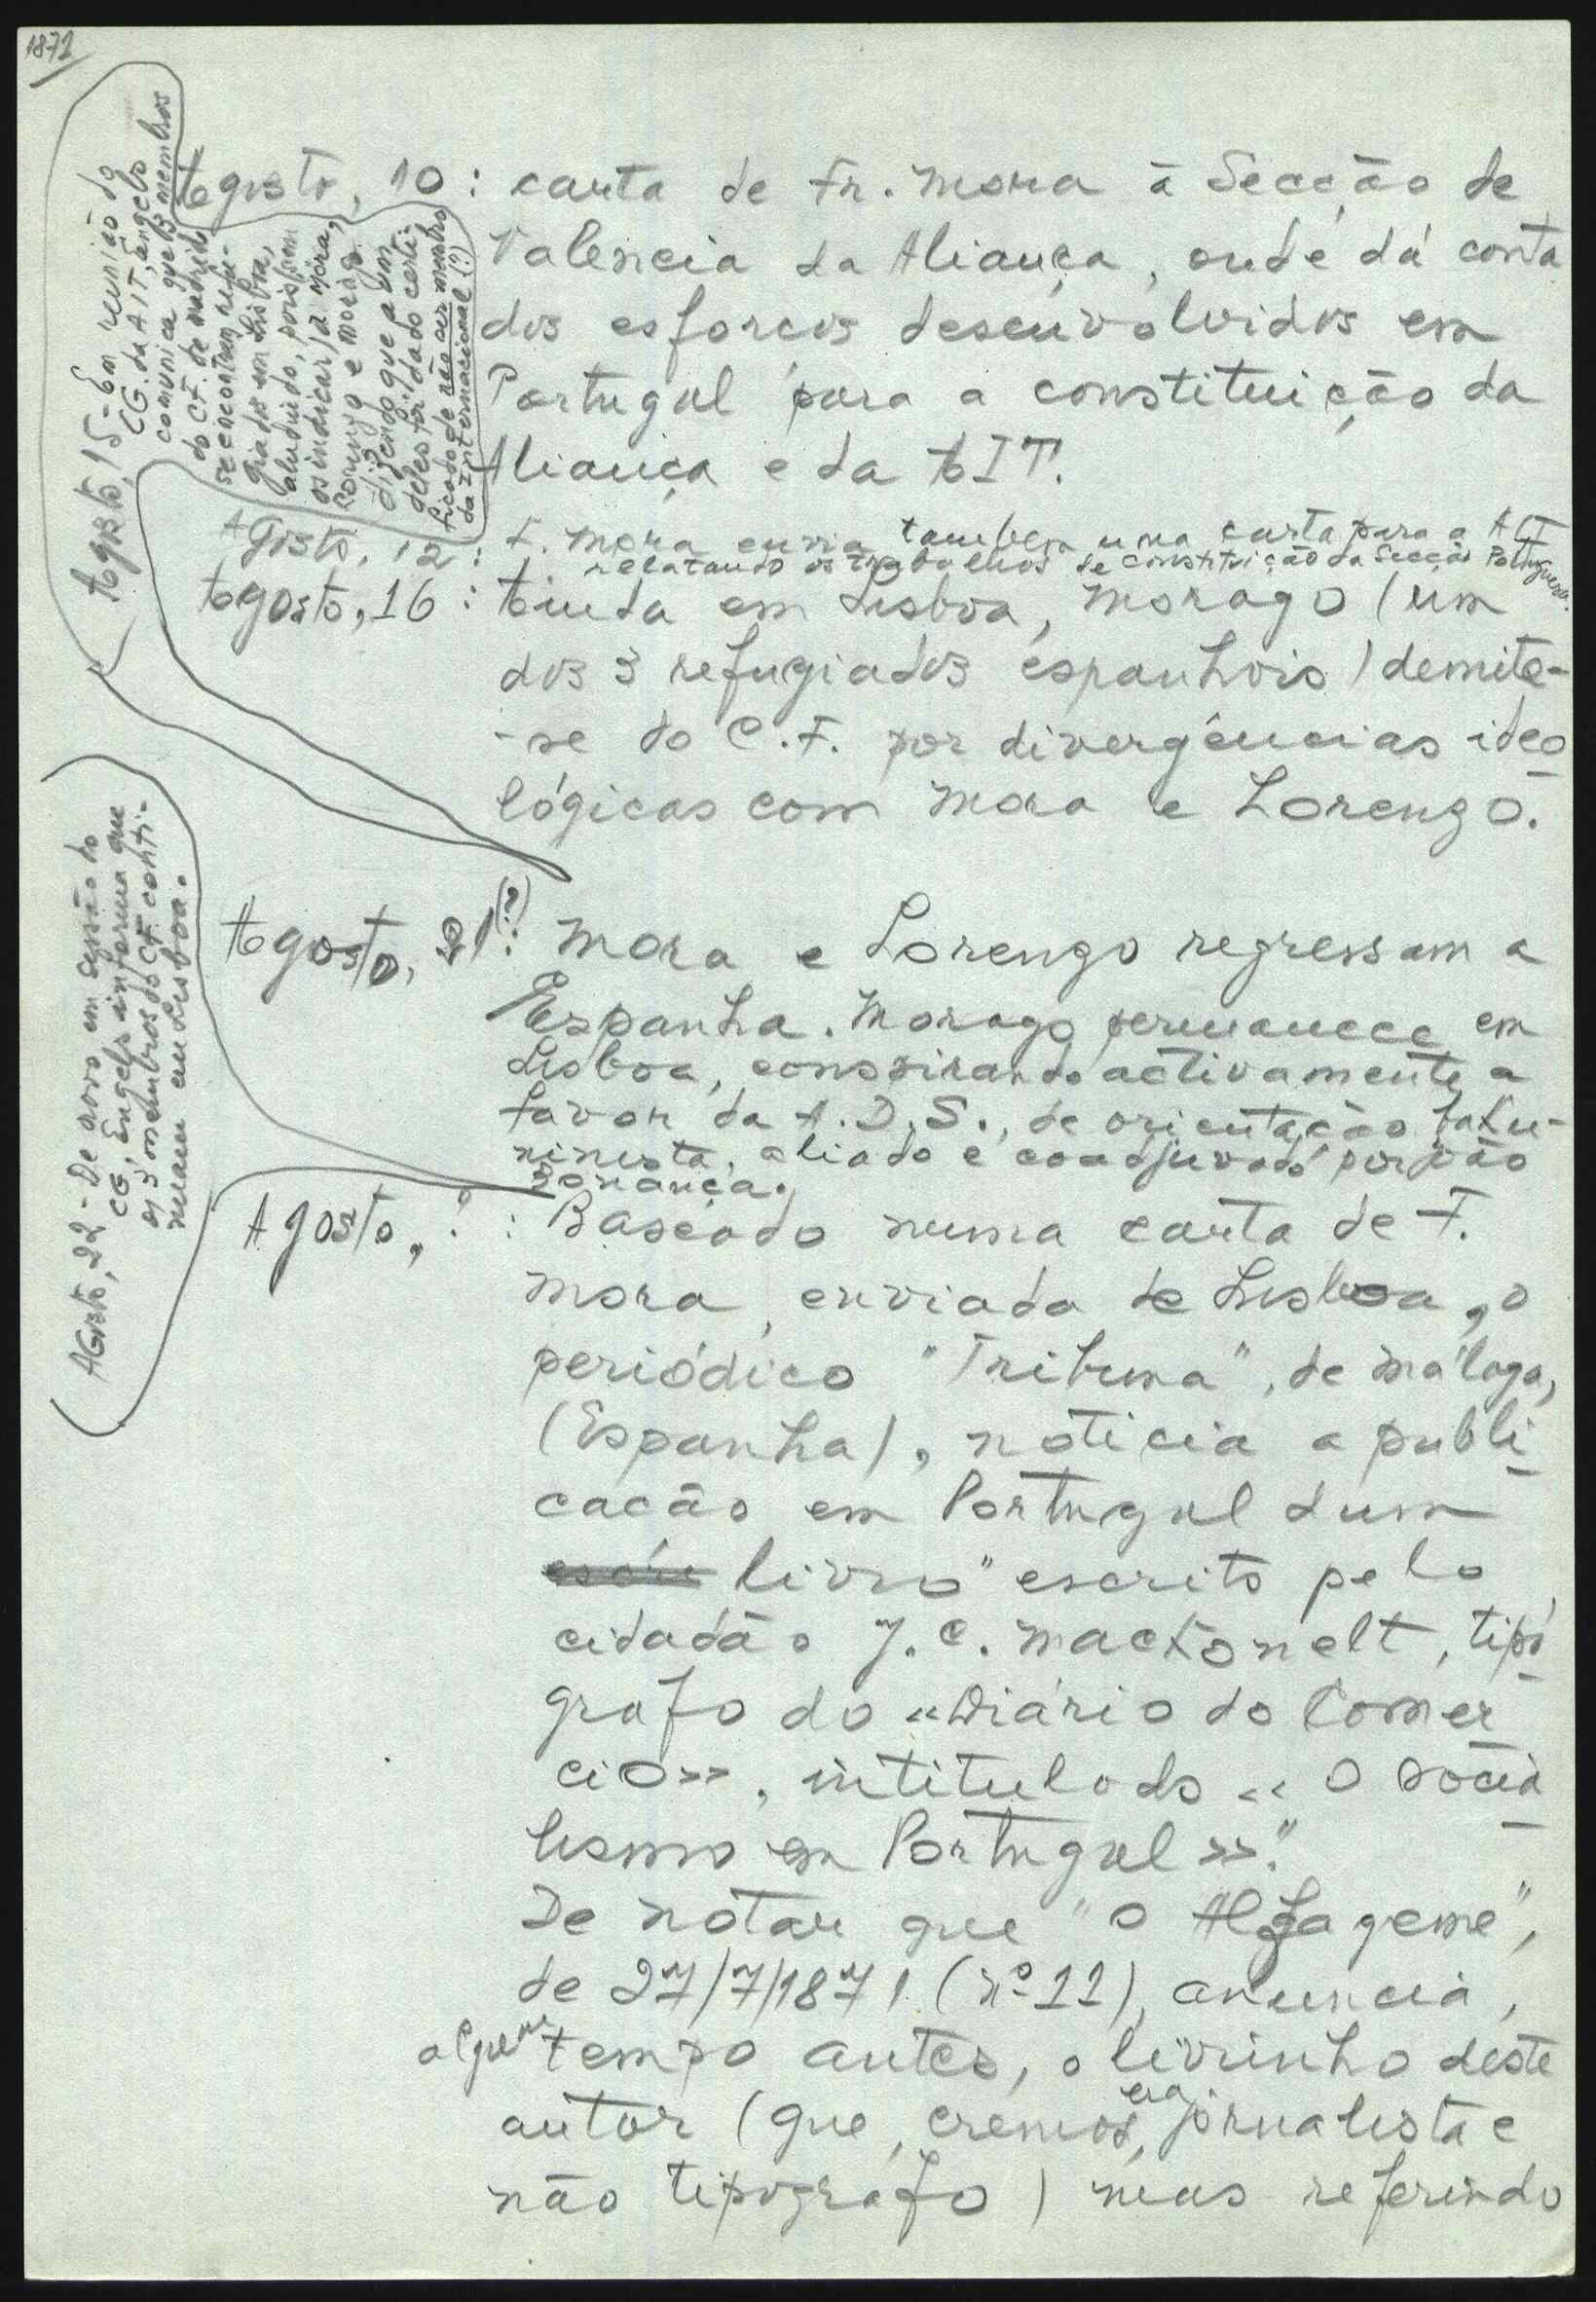 1871
Agosto, 10 : carta de Fr. Mora à Secção de
Valencia da Aliança, onde dá conta
dos esforços desenvolvidos em
Portugal para a constituição da
Aliança e da AIT.
Agosto, 12 : F. Mora envia tambem uma carta para a AIT
relatando os trabalhos de constituição da Secção Portuguesa.
Agosto, 15 - Em reunião do
CG. da AIT, Engels
comunica que 3 membros
do CF. de Madrid
se encontram refu-
giados em Lisboa,
aludindo, pois, sem
os indicar, a Mora,
Lorenzo e Morago.
dizendo que a um
deles foi dado certi-
ficado de não ser membro
da Internacional (?)
Agosto, 16 : Ainda em Lisboa, Morago (um
dos 3 refugiados espanhois) demite-
-se do C.F. por divergências ideo
lógicas com Mora e Lorenzo.
Agosto, 21(?) : Mora e Lorenzo regressam a
Espanha. Morago permanece em
Lisboa, conspirando activamente a
favor da A.D.S., de orientação baku-
ninista, aliado e coadjuvado por João
Bonança.
Agosto, 22 - De novo em sessão do
CG, Engels informa que
os 3 membros do CF. conti-
nuam em Lisboa.
Agosto, ? : Baseado numa carta de F.
Mora, enviada de Lisboa, o
periódico "Tribuna", de Málaga,
(Espanha), noticia a publi
cacão em Portugal dum
livro "escrito pelo
cidadão J. C. Mackonelt, tipó
grafo do «Diário do Comer
cio», intitulado «O socia
lismo em Portugal»."
De notar que "O Alfageme",
de 27/7/1871 (nº 11), anuncia,
algum tempo antes, o livrinho deste
autor (que, cremos, era jornalista e
não tipógrafo) mas referindo